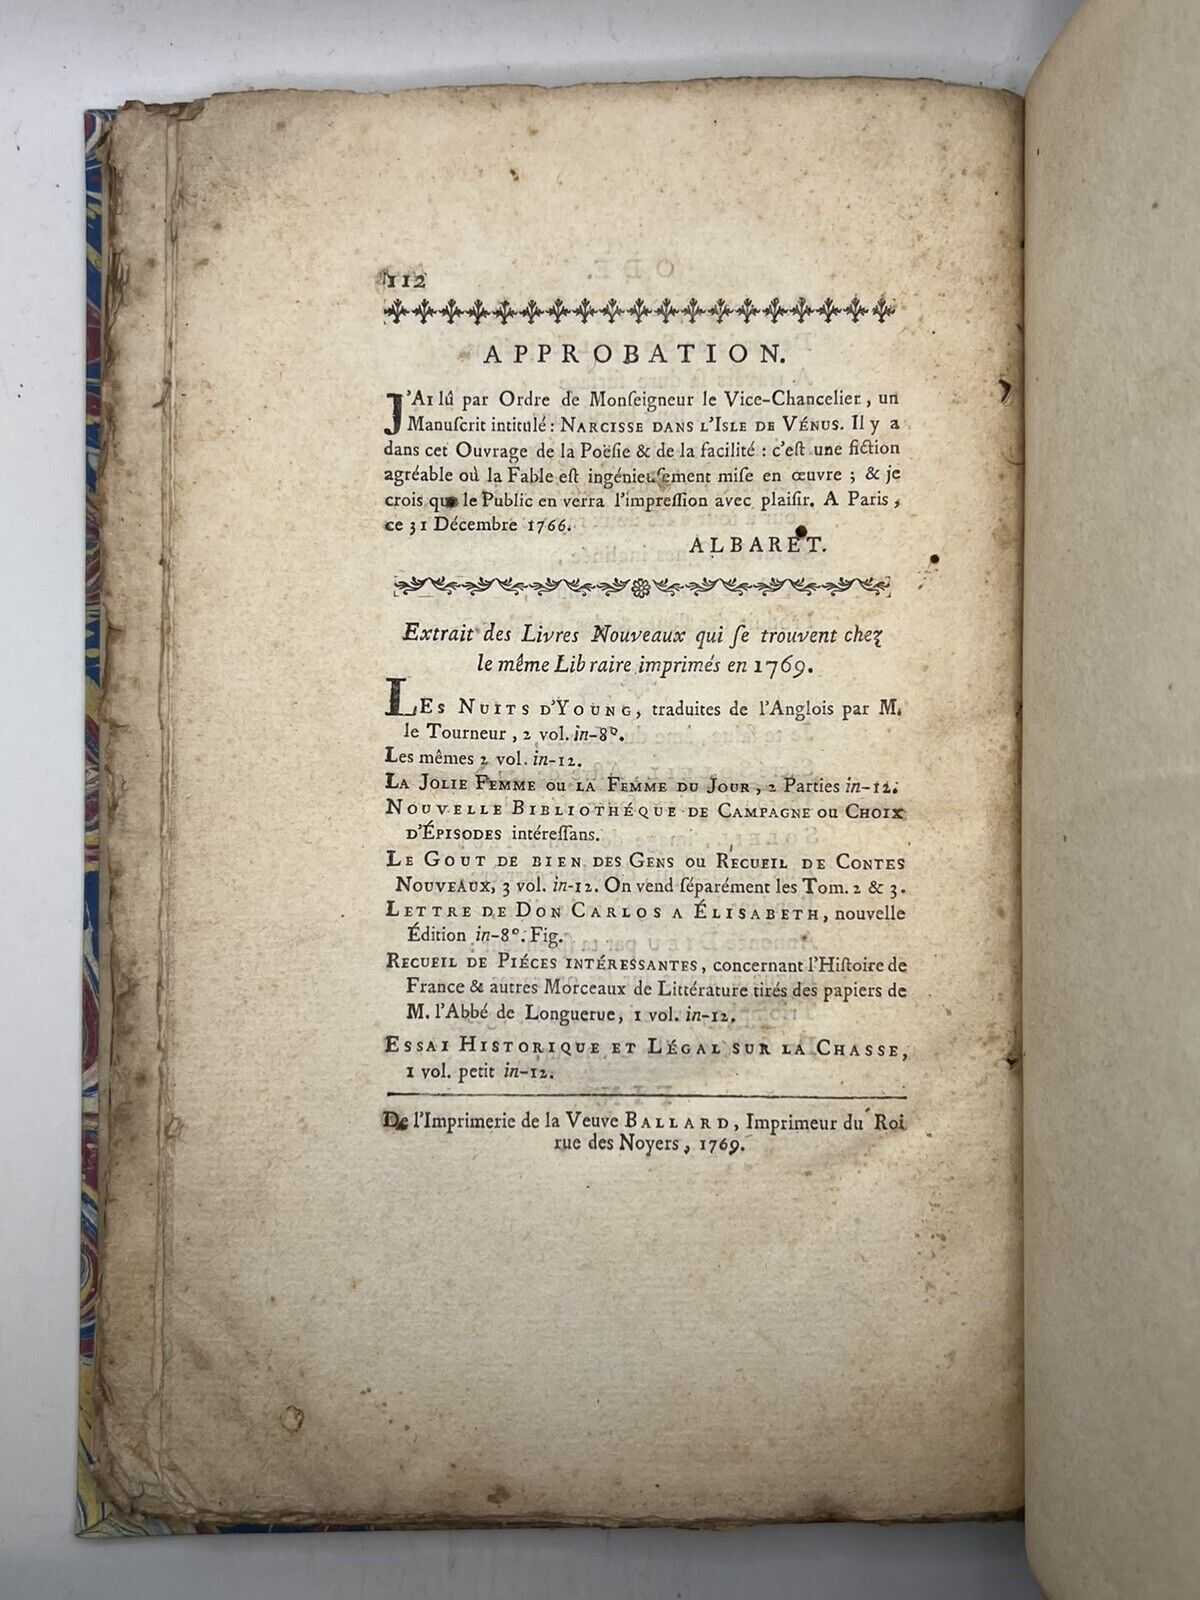 112
APPROBATION.
J'AI lû par Ordre de Monſeigneur le Vice-Chancelier, un
Manuſcrit intitulé : NARCISSE DANS L'ISLE DE VÉNUS. Il y a
dans cet Ouvrage de la Poëſie & de la facilité : c'eſt une fiction
agréable où la Fable eſt ingénieuſement miſe en œuvre ; & je
crois que le Public en verra l'impreſſion avec plaiſir. A Paris,
ce 31 Décembre 1766.
ALBARET.
Extrait des Livres Nouveaux qui ſe trouvent chez
le même Libraire imprimés en 1769.
LES NUITS D'YOUNG, traduites de l'Anglois par M.
le Tourneur, 2 vol. in-8º.
Les mêmes 2 vol. in-12.
LA JOLIE FEMME OU LA FEMME DU JOUR, 2 Parties in-12.
NOUVELLE BIBLIOTHÉQUE DE CAMPAGNE OU CHOIX
D'ÉPISODES intéreſſans.
LE GOUT DE BIEN DES GENS OU RECUEIL DE CONTES
NOUVEAUX, 3 vol. in-12. On vend ſéparément les Tom. 2 & 3.
LETTRE DE DON CARLOS A ÉLISABETH, nouvelle
Édition in-8º. Fig.
RECUEIL DE PIÉCES INTÉRESSANTES, concernant l'Hiſtoire de
France & autres Morceaux de Littérature tirés des papiers de
M. l'Abbé de Longuerue, 1 vol. in-12.
ESSAI HISTORIQUE ET LÉGAL SUR LA CHASSE,
1 vol. petit in-12.
De l'Imprimerie de la Veuve BALLARD, Imprimeur du Roi
rue des Noyers, 1769.